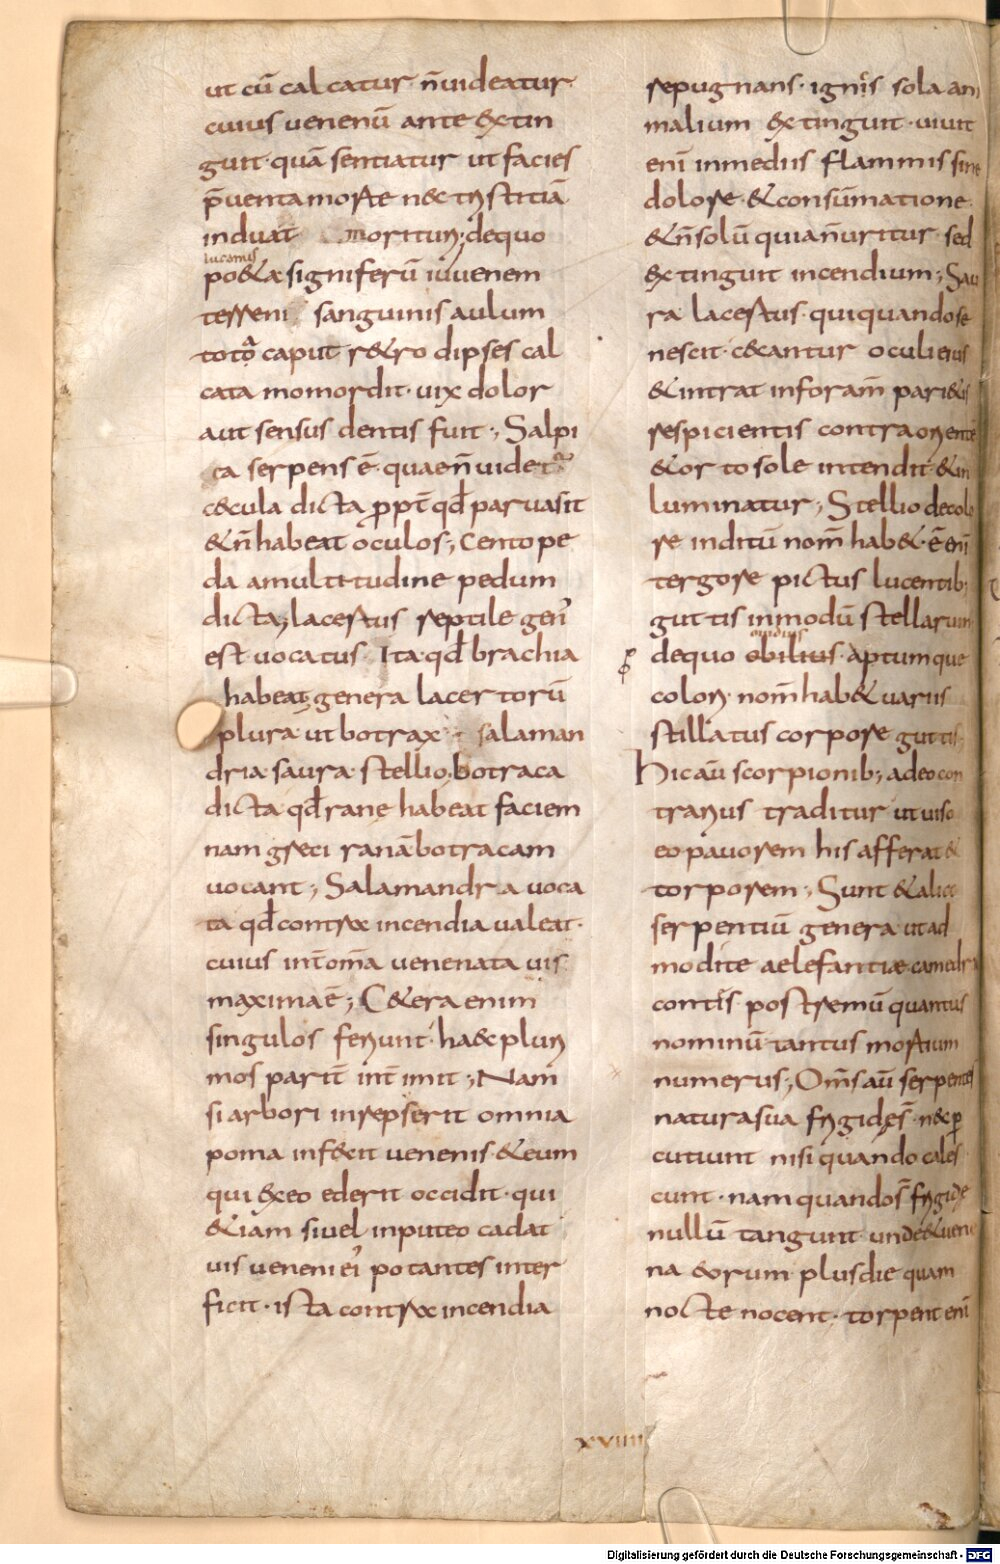 ut cū calcatur n̄ uideatur
cuius uenenū ante & extin
guit· quā sentiatur ut facies
p̄uenta morte nec tristitiā
induat moriturj; dequo
lucanus
po&a signiferū iuuenem
terreni sanguinis aulum
totū caput r&ro dipses cal
cata momordit· uix dolor
aut sensus dentis fuit·; Salpi
ca serpens ē· quae n̄ uidetur
c&cula dicta ꝓpt̄ qđ parua sit
& n̄ habeat oculos·; Centope
da a multitudine pedum
dicta; lacertus reptile gen'
est uocatus Ita· qđ brachia
habeat; genera lacertorū
plura ut botrax· salaman
dria· saura· stellio· botraca
dicta· qđ ranę habeat faciem
nam greci ranā botracam
uocant·; Salamandra uoca
ta qđ contra incendia ualeat·
cuius int̄ om̄a uenenata uis
maxima ē·; C&era enim
singulos feriunt· haec pluri
mos parit̄ int̄imit·; Nam
si arbori inrepserit omnia
poma infecit uenenis· & eum
qui ex eo ederit occidit· qui
&iam si uel in puteo cadat
uis ueneni ei' potantes inter
ficit· ista contra incendia
repugnans· ignis sola ani
malium extinguit· uiuit
enī in mediis flammis sine
dolore· & consūmatione·
& n̄ solū quia n̄ uritur· sed
extinguit incendium·; Sau
ra lacertus· qui quando se
nescit· c&cantur oculi eius
& intrat in foram̄ pari&is
respicientis contra orientē
& orto sole intendit· & in
luminatur·; Stellio de colo
re inditū nom̄ hab&· ē enī
tergore pictus lucentib;
guttis in modū stellarum
ouidius
de quo obilius· aptum que
colori· nom̄ hab& uariis
stillatus corpore guttis·
Hic aū scorpionib; adeo con
trarius traditur ut uiso
eo pauorem his afferat &
torporem·; Sunt & alia
serpentiū genera· ut ad
modite aelefantiæ camedra
contis· postremū quantus
nominū· tantus mortium
numerus·; Om̄s aū serpentes
natura sua frigidę s̄· nec ꝑ
cutiunt nisi quando cales
cunt· nam quando s̄ frigidę
nullū tangunt· unde & uene
na eorum plus die quam
nocte nocent· torpent enī
xviiii
Digitalisierung gefördert durch die Deutsche Forschungsgemeinschaft · DFG